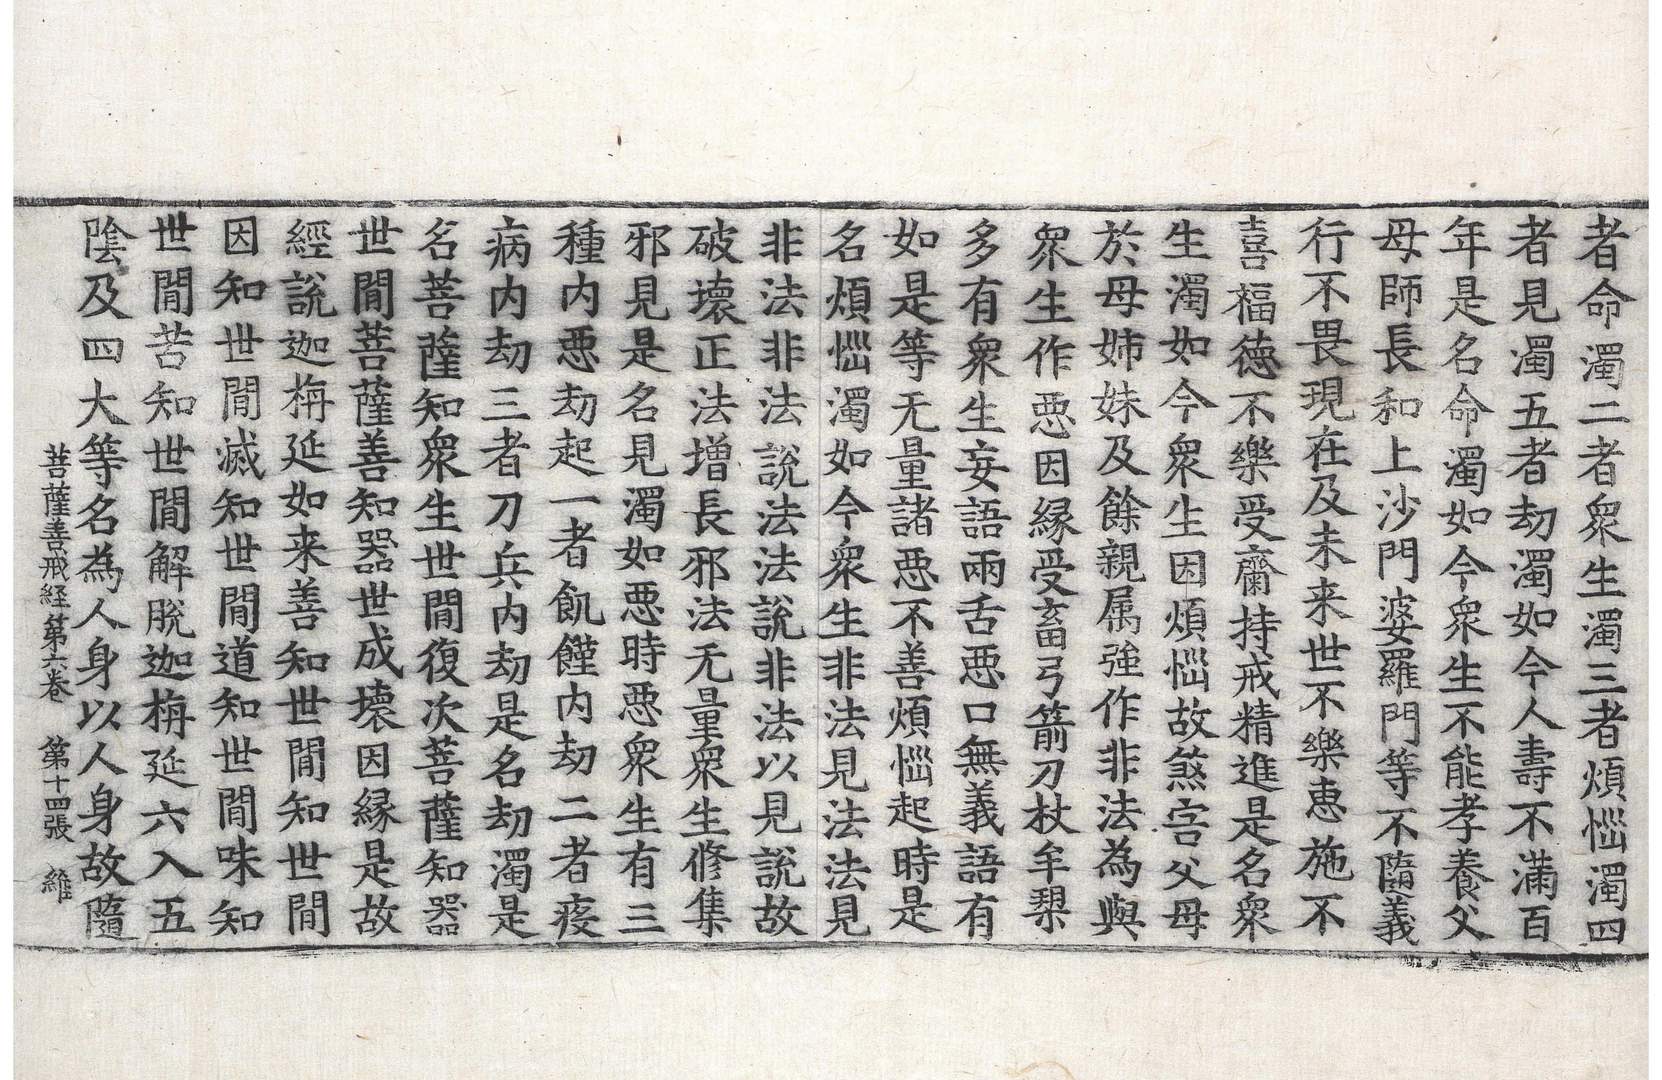 者命濁二者衆生濁三者煩惱濁四
者見濁五者劫濁如今人壽不滿百
年是名命濁如今衆生不能孝養父
母師長和上沙門婆羅門等不隨義
行不畏現在及未来世不樂惠施不
喜福德不樂受齋持戒精進是名衆
生濁如今衆生因煩惱故煞害父母
於母姉妹及餘親属強作非法為與
衆生作惡因縁受畜弓箭刀杖牟槊
多有衆生妄語兩舌惡口無義語有
如是等无量諸惡不善煩惱起時是
名煩惱濁如今衆生非法見法法見
非法非法說法法說非法以見說故
破壞正法增長邪法无量衆生修集
邪見是名見濁如惡時惡衆生有三
種内惡劫起一者飢饉内劫二者疫
病内劫三者刀兵内劫是名劫濁是
名菩薩知衆生世間復次菩薩知器
世間菩薩善知器世成壞因縁是故
經說迦栴延如来善知世間知世間
因知世間滅知世間道知世間味知
世間苦知世間解脫迦栴延六入五
陰及四大等名為人身以人身故隨
菩薩善戒経第六卷 第十四張 維